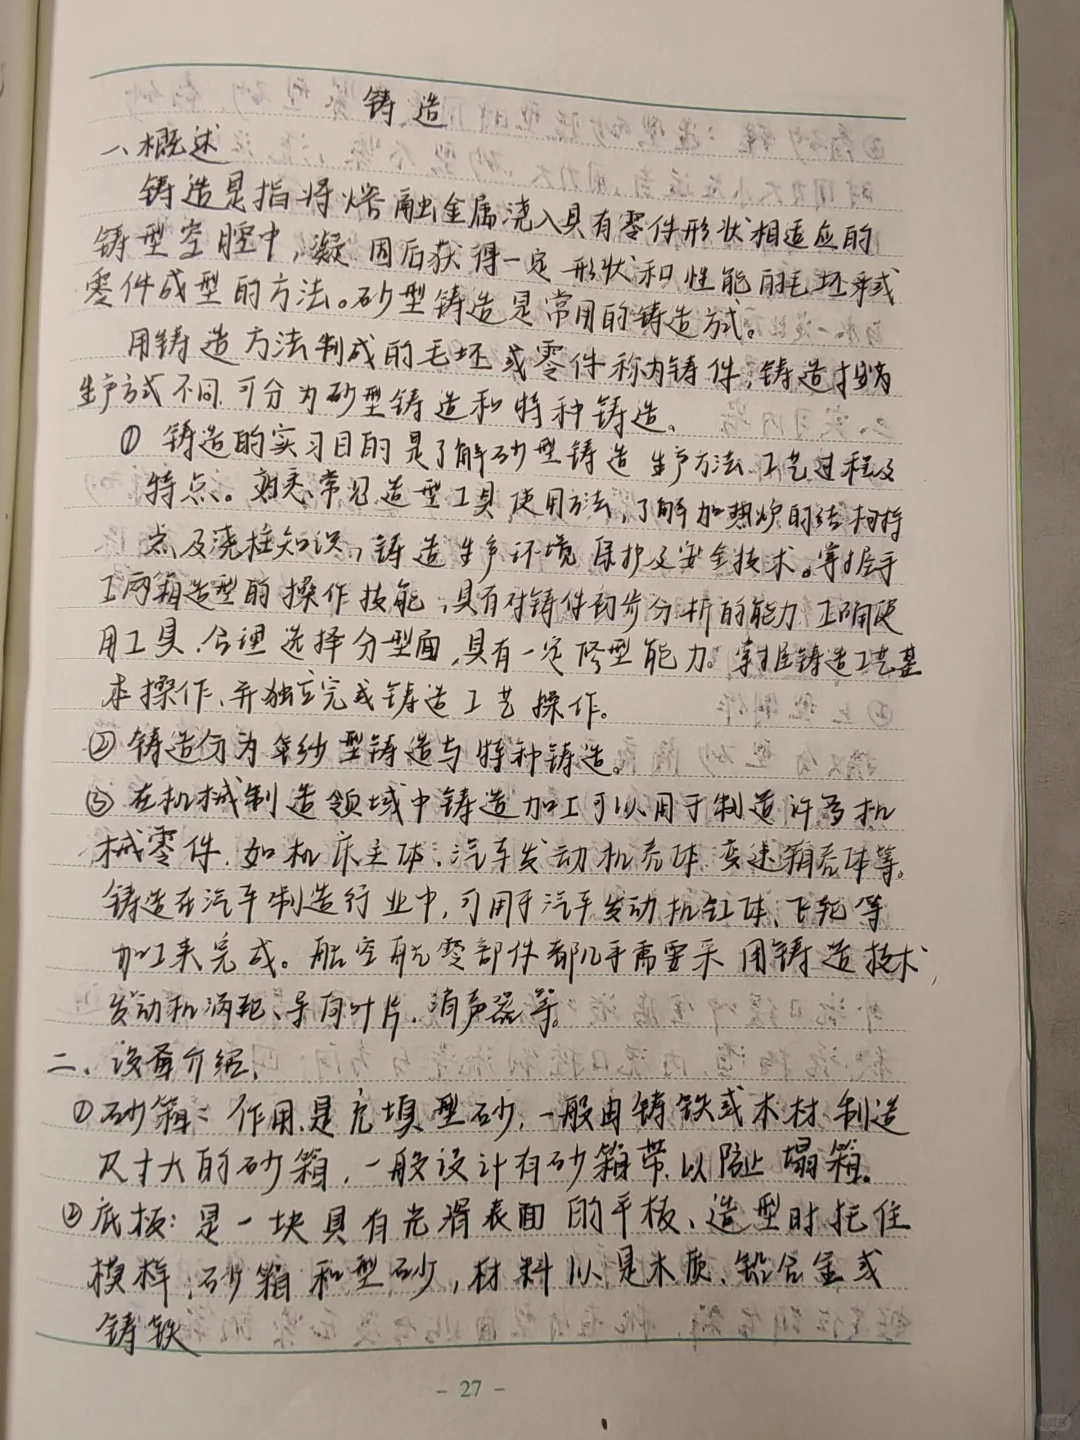 铸造
一、概述
铸造是指将熔融金属浇入具有零件形状相适应的
铸型空腔中，凝固后获得一定形状和性能的毛坯或
零件成型的方法。砂型铸造是常用的铸造方式。
用铸造方法制成的毛坯或零件称为铸件，铸造
生产方式不同，可分为砂型铸造和特种铸造、
① 铸造的实习目的是了解砂型铸造生产方法、工艺过程及
特点。熟悉常见造型工具使用方法，了解加热炉的结构特
点及浇注知识，铸造生产环境保护及安全技术。掌握手
工两箱造型的操作技能，具有对铸件初步分析的能力，正确使
用工具、合理选择分型面，具有一定修型能力。掌握铸造工艺基
本操作、并独立完成铸造工艺操作。
② 铸造分为 砂型铸造与特种铸造。
③ 在机械制造领域中铸造加工可以用于制造许多机
械零件，如机床主体、汽车发动机壳体、变速箱壳体等。
铸造在汽车制造行业中，可用于汽车发动机缸体、飞轮等
加工来完成。航空航 零部件都几乎需要采用铸造技术，
发动机涡轮、导向叶片、消声器等。
二、设备介绍，
① 砂箱：作用是充填型砂，一般由铸铁或木材制造
尺寸大的砂箱，一般设计有砂箱带，以防止塌箱。
② 底板：是一块具有光滑表面的平板、造型时托住
模样，砂箱和型砂，材料以是木质、铝合金或
铸铁
- 27 -